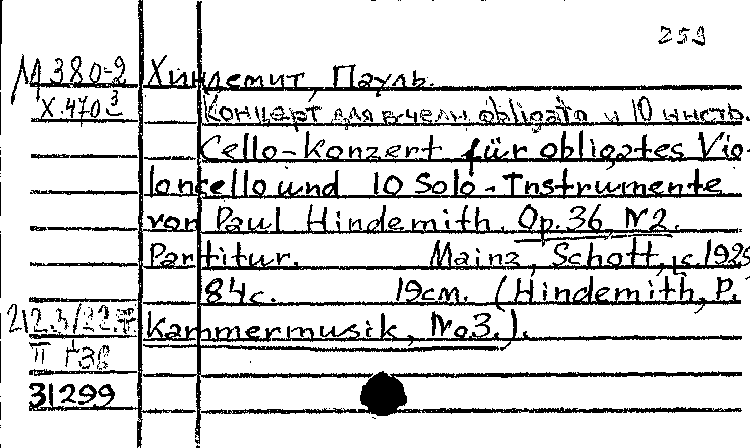 259
М 380-2 Хиндемит, Пауль.
X.470 3 Концерт для в-чели obligato и 10 инстр.
Cello-Konzert für obligates Vio-
loncello und 10 Solo-Instrumente
von Paul Hindemith. Op. 36, N2.
Partitur. Mainz, Schott, c.1925
84с. 19см. (Hindemith, P.
Kammermusik, No3.).
212.3/22.
II
31299